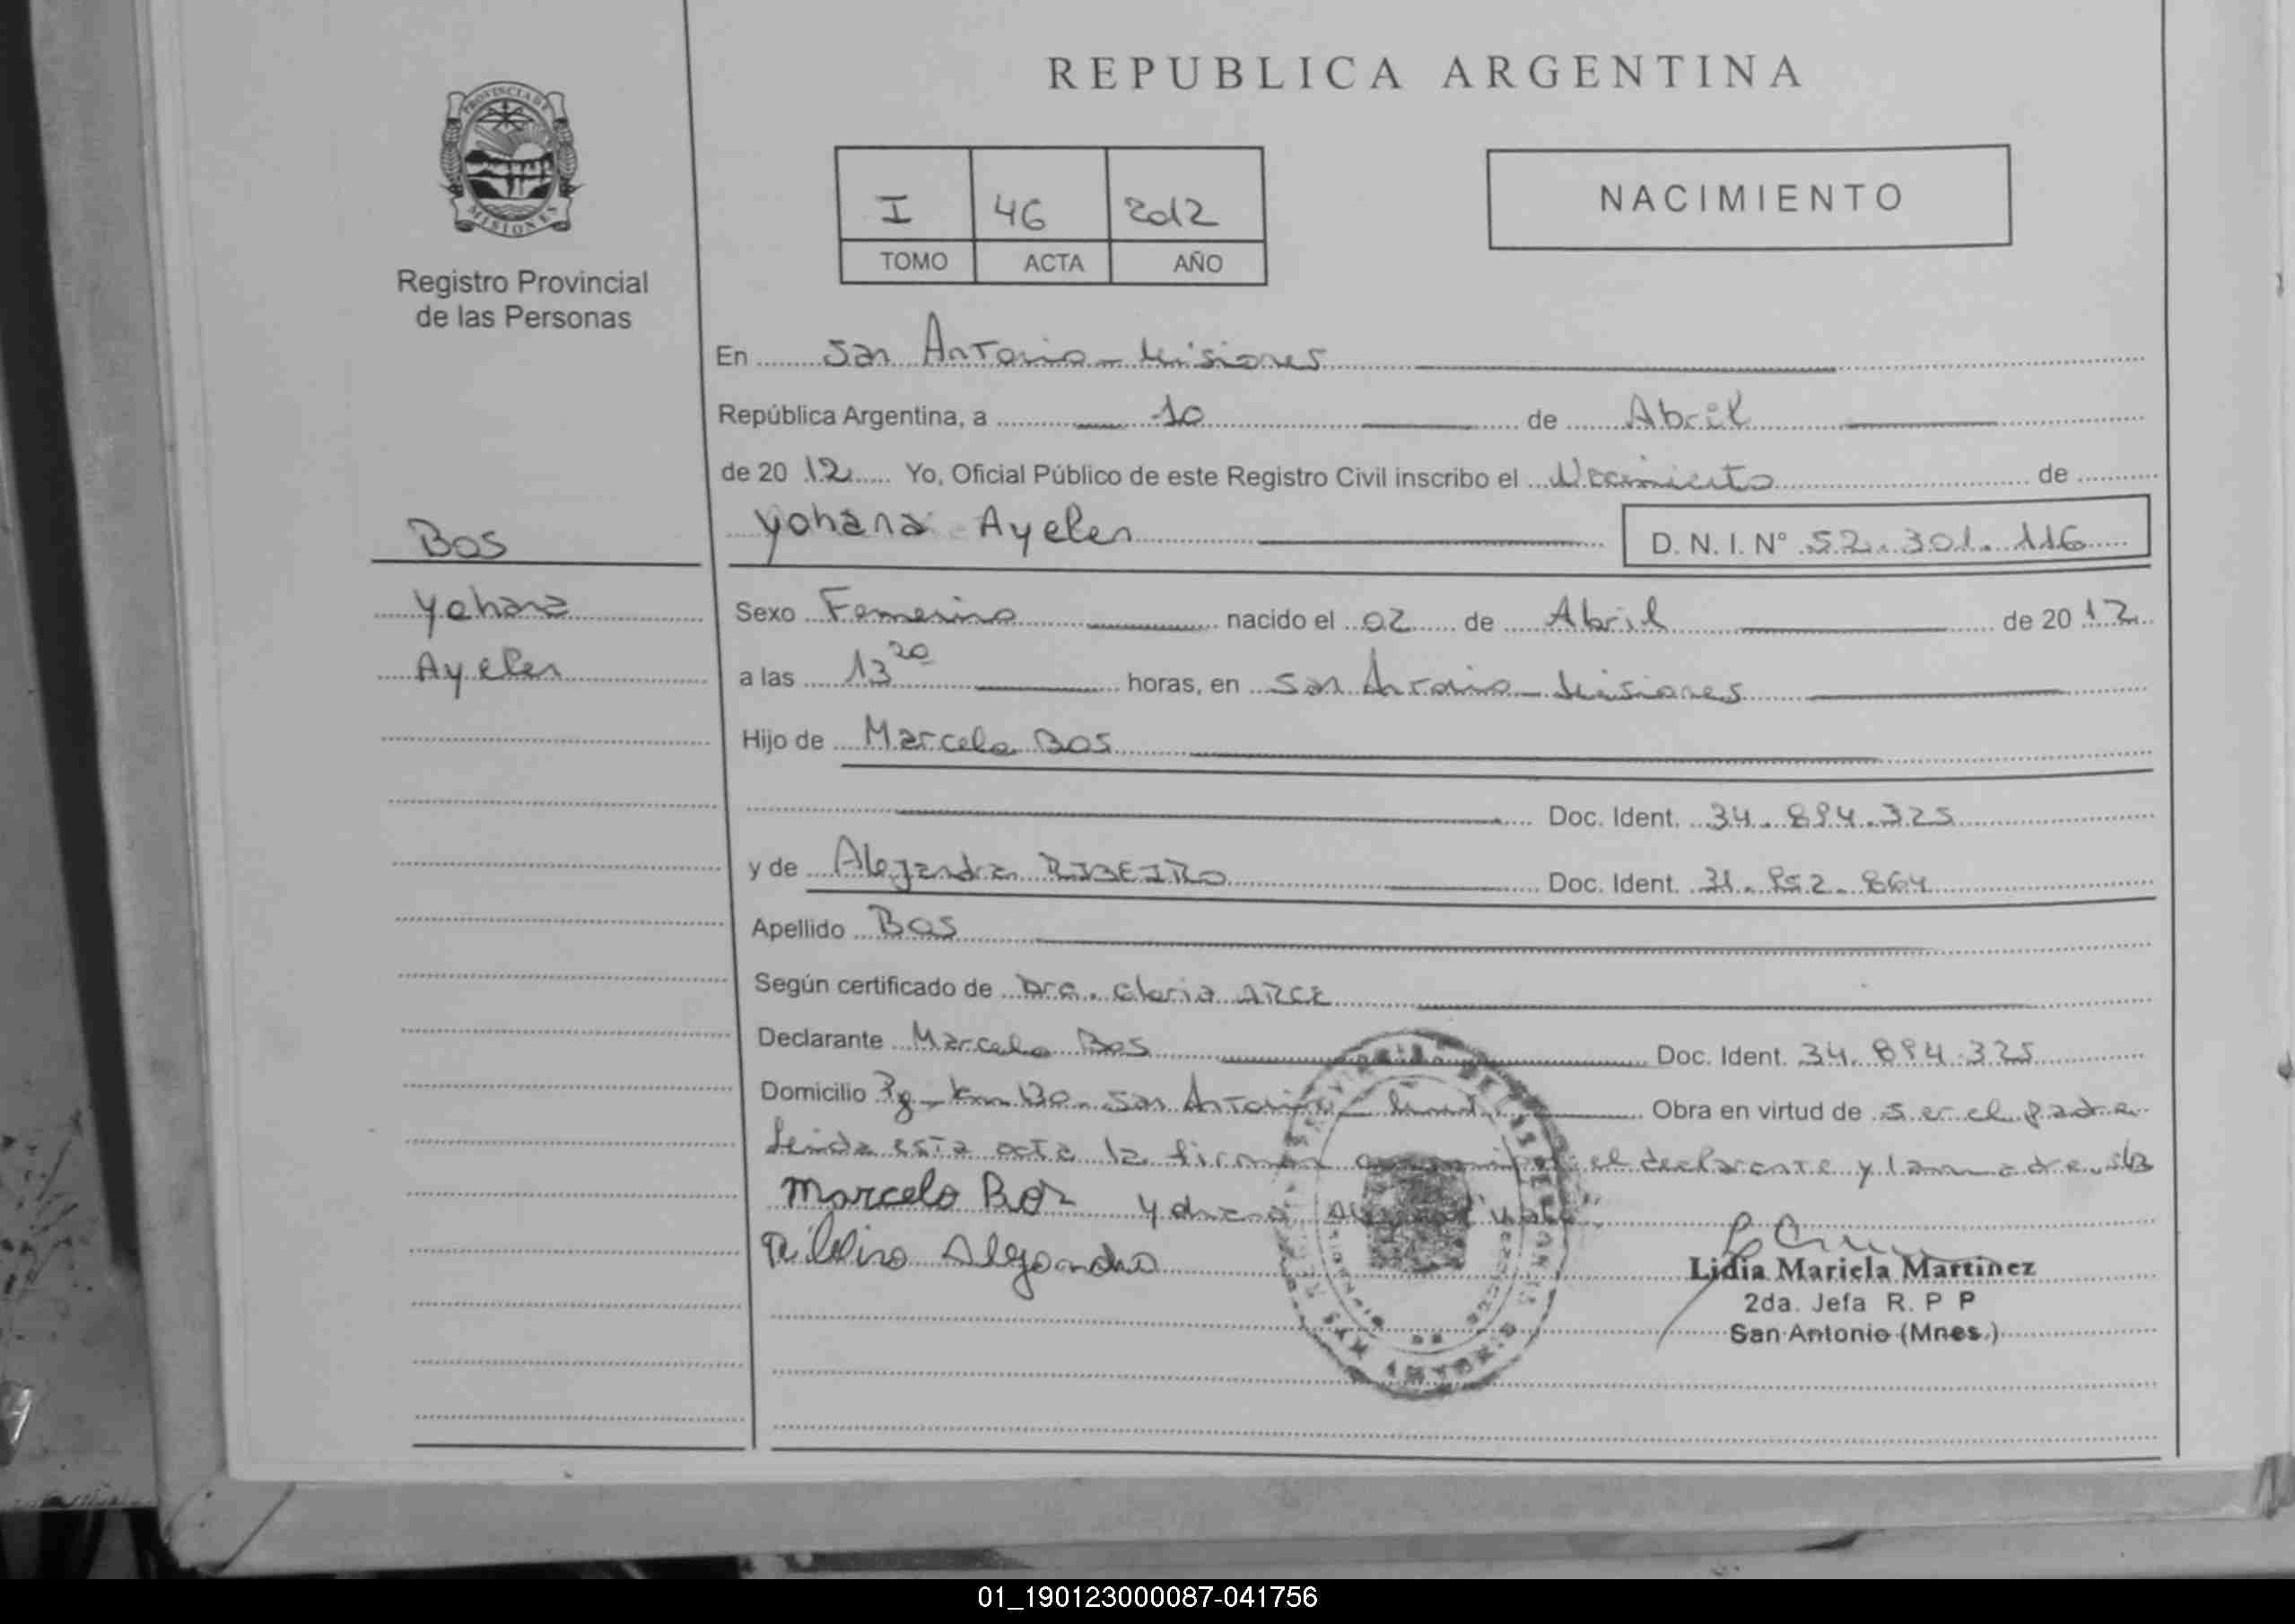 REPUBLICA ARGENTINA
PROVINCIA DE MISIONES
Registro Provincial
de las Personas
I 46 2012
TOMO ACTA AÑO
NACIMIENTO
En San Antonio - Misiones
República Argentina, a 10 de Abril
de 20 12 Yo, Oficial Público de este Registro Civil inscribo el Nacimiento de
Bos
Yohana Ayelen D. N. I. N° 52.301.116
Yohana
Sexo Femenino nacido el 02 de Abril de 20 12
Ayelen
a las 13 20 horas, en San Antonio - Misiones
Hijo de Marcelo BOS
Doc. Ident. 34.894.325
y de Alejandra RIBEIRO Doc. Ident. 31.952.864
Apellido BOS
Según certificado de Dra. Gloria ARCE
Declarante Marcelo Bos Doc. Ident. 34.894.325
Domicilio Km 130 - San Antonio - Obra en virtud de ser el padre
Leida esta acta la firman el declarante y la madre
Marcelo Bos
Ribeiro Alejandra
Lidia Mariela Martinez
2da. Jefa R. P P
San Antonio (Mnes.)
01_190123000087-041756